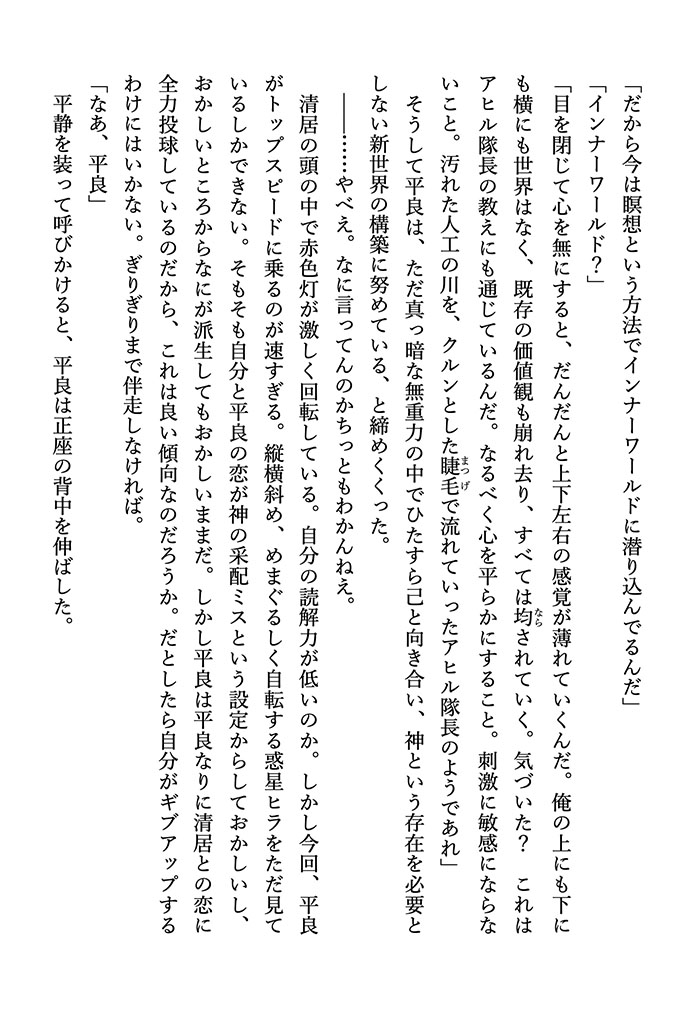 「だから今は瞑想という方法でインナーワールドに潜り込んでるんだ」
「インナーワールド？」
「目を閉じて心を無にすると、だんだんと上下左右の感覚が薄れていくんだ。俺の上にも下に
も横にも世界はなく、既存の価値観も崩れ去り、すべては均されていく。気づいた？　これは
アヒル隊長の教えにも通じているんだ。なるべく心を平らかにすること。刺激に敏感にならな
いこと。汚れた人工の川を、クルンとした睫毛で流れていったアヒル隊長のようであれ」
　そうして平良は、ただ真っ暗な無重力の中でひたすら己と向き合い、神という存在を必要と
しない新世界の構築に努めている、と締めくくった。
　――……やべえ。なに言ってんのかちっともわかんねえ。
　清居の頭の中で赤色灯が激しく回転している。自分の読解力が低いのか。しかし今回、平良
がトップスピードに乗るのが速すぎる。縦横斜め、めまぐるしく自転する惑星ヒラをただ見て
いるしかできない。そもそも自分と平良の恋が神の采配ミスという設定からしておかしいし、
おかしいところからなにが派生してもおかしいままだ。しかし平良は平良なりに清居との恋に
全力投球しているのだから、これは良い傾向なのだろうか。だとしたら自分がギブアップする
わけにはいかない。ぎりぎりまで伴走しなければ。
「なあ、平良」
　平静を装って呼びかけると、平良は正座の背中を伸ばした。